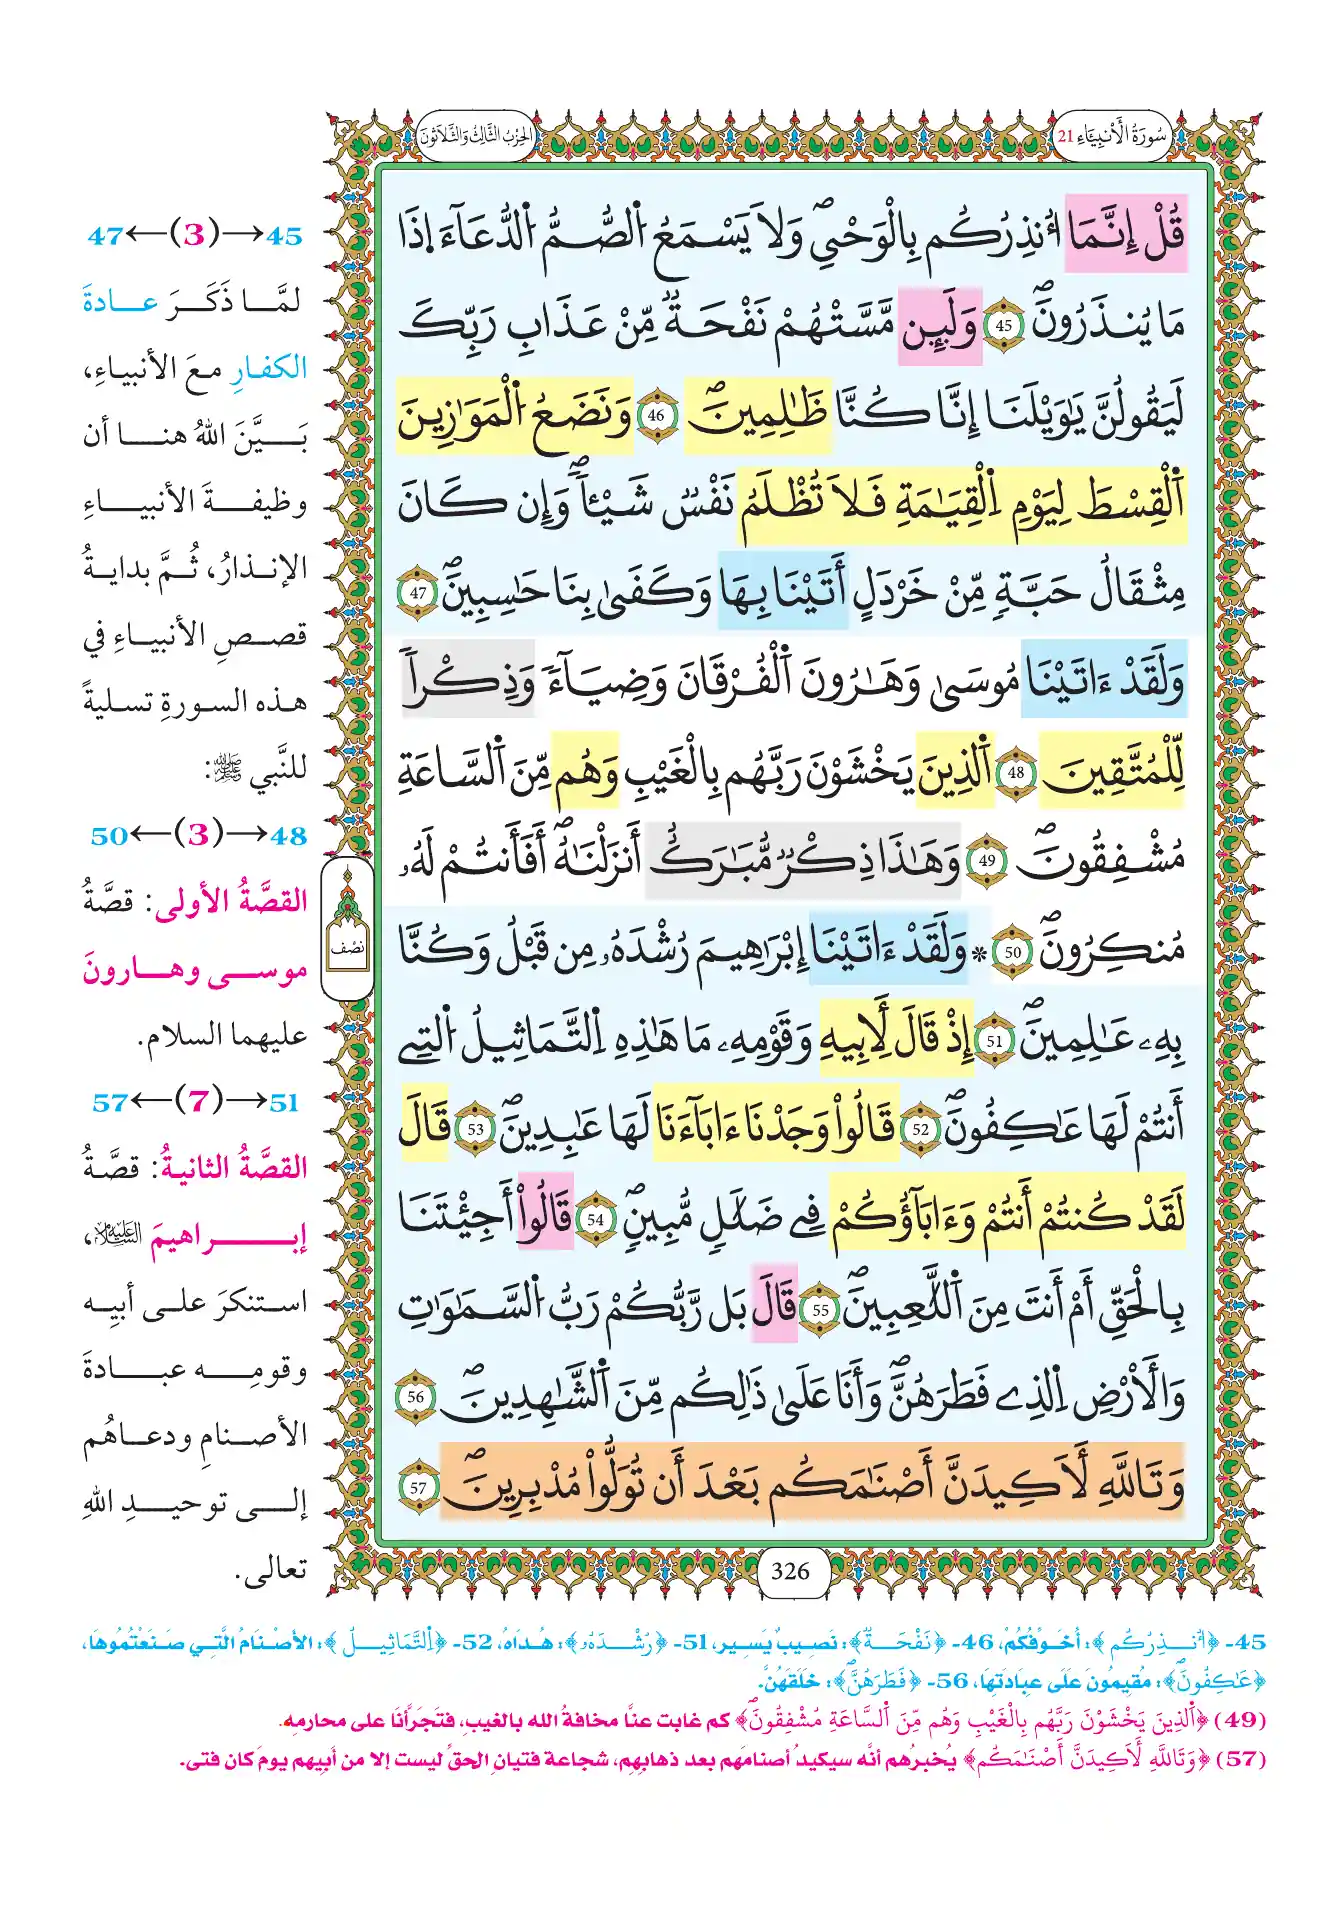 سُورَةُ الأَنْبِيَاءِ 21
الحِزْبُ الثَّالِثُ وَالثَّلَاثُونَ
قُلْ إِنَّمَا أُنذِرُكُم بِالْوَحْيِ وَلَا يَسْمَعُ الصُّمُّ الدُّعَآءَ اِذَا
مَا يُنذَرُونَ 45 وَلَئِن مَّسَّتْهُمْ نَفْحَةٌ مِّنْ عَذَابِ رَبِّكَ
لَيَقُولُنَّ يَٰوَيْلَنَا إِنَّا كُنَّا ظَٰلِمِينَ 46 وَنَضَعُ الْمَوَٰزِينَ
اَلْقِسْطَ لِيَوْمِ اِلْقِيَٰمَةِ فَلَا تُظْلَمُ نَفْسٌ شَيْـٔاً وَإِن كَانَ
مِثْقَالُ حَبَّةٍ مِّنْ خَرْدَلٍ أَتَيْنَا بِهَا وَكَفَىٰ بِنَا حَٰسِبِينَ 47
وَلَقَدْ ءَاتَيْنَا مُوسَىٰ وَهَٰرُونَ اَلْفُرْقَانَ وَضِيَآءً وَذِكْراً
لِّلْمُتَّقِينَ 48 اَلذِينَ يَخْشَوْنَ رَبَّهُم بِالْغَيْبِ وَهُم مِّنَ اَلسَّاعَةِ
مُشْفِقُونَ 49 وَهَٰذَا ذِكْرٌ مُّبَٰرَكٌ أَنزَلْنَٰهُ أَفَأَنتُمْ لَهُۥ
مُنكِرُونَ 50 * وَلَقَدْ ءَاتَيْنَا إِبْرَٰهِيمَ رُشْدَهُۥ مِن قَبْلُ وَكُنَّا
بِهِۦ عَٰلِمِينَ 51 إِذْ قَالَ لِأَبِيهِ وَقَوْمِهِۦ مَا هَٰذِهِ اِلتَّمَاثِيلُ اُلتِے
أَنتُمْ لَهَا عَٰكِفُونَ 52 قَالُواْ وَجَدْنَا ءَابَآءَنَا لَهَا عَٰبِدِينَ 53 قَالَ
لَقَدْ كُنتُمْ أَنتُمْ وَءَابَآؤُكُمْ فِے ضَلَٰلٍ مُّبِينٍ 54 قَالُواْ أَجِئْتَنَا
بِالْحَقِّ أَمْ أَنتَ مِنَ اَللَّٰعِبِينَ 55 قَالَ بَل رَّبُّكُمْ رَبُّ اُلسَّمَٰوَٰتِ
وَالْأَرْضِ اِلذِے فَطَرَهُنَّ وَأَنَا عَلَىٰ ذَٰلِكُم مِّنَ اَلشَّٰهِدِينَ 56
وَتَاللَّهِ لَأَكِيدَنَّ أَصْنَٰمَكُم بَعْدَ أَن تُوَلُّواْ مُدْبِرِينَ 57
326
45→(3)←47
لمَّا ذَكَرَ عادةَ
الكفارِ معَ الأنبياءِ،
بَيَّنَ اللهُ هنا أن
وظيفةَ الأنبياءِ
الإنذارُ، ثُمَّ بدايةُ
قصصِ الأنبياءِ في
هذه السورةِ تسليةً
للنَّبي ﷺ:
48→(3)←50
القصَّةُ الأولى: قصَّةُ
موسى وهارونَ
عليهما السلام.
نصف
51→(7)←57
القصَّةُ الثانيةُ: قصَّةُ
إبراهيمَ عليه السلام،
استنكرَ على أبيه
وقومِه عبادةَ
الأصنامِ ودعاهُم
إلى توحيدِ اللهِ
تعالى.
45- ﴿أُنذِرُكُم﴾: أُخَوِّفُكُمْ، 46- ﴿نَفْحَةٌ﴾: نَصِيبٌ يَسِير، 51- ﴿رُشْدَهُۥ﴾: هُدَاهُ، 52- ﴿اِلتَّمَاثِيلُ﴾: الأصْنَامُ الَّتِي صَنَعْتُمُوهَا،
﴿عَٰكِفُونَ﴾: مُقِيمُونَ عَلَى عِبَادَتِهَا، 56- ﴿فَطَرَهُنَّ﴾: خَلَقَهُنَّ.
(49) ﴿اَلذِينَ يَخْشَوْنَ رَبَّهُم بِالْغَيْبِ وَهُم مِّنَ اَلسَّاعَةِ مُشْفِقُونَ﴾ كم غابت عنَّا مخافةُ الله بالغيب، فتَجَرَّأنَا على محارمِه.
(57) ﴿وَتَاللَّهِ لَأَكِيدَنَّ أَصْنَٰمَكُم﴾ يُخبرُهم أنَّه سيكيدُ أصنامَهم بعد ذهابِهِم، شجاعة فتيانِ الحقِّ ليست إلا من أبيهم يومَ كان فتى.